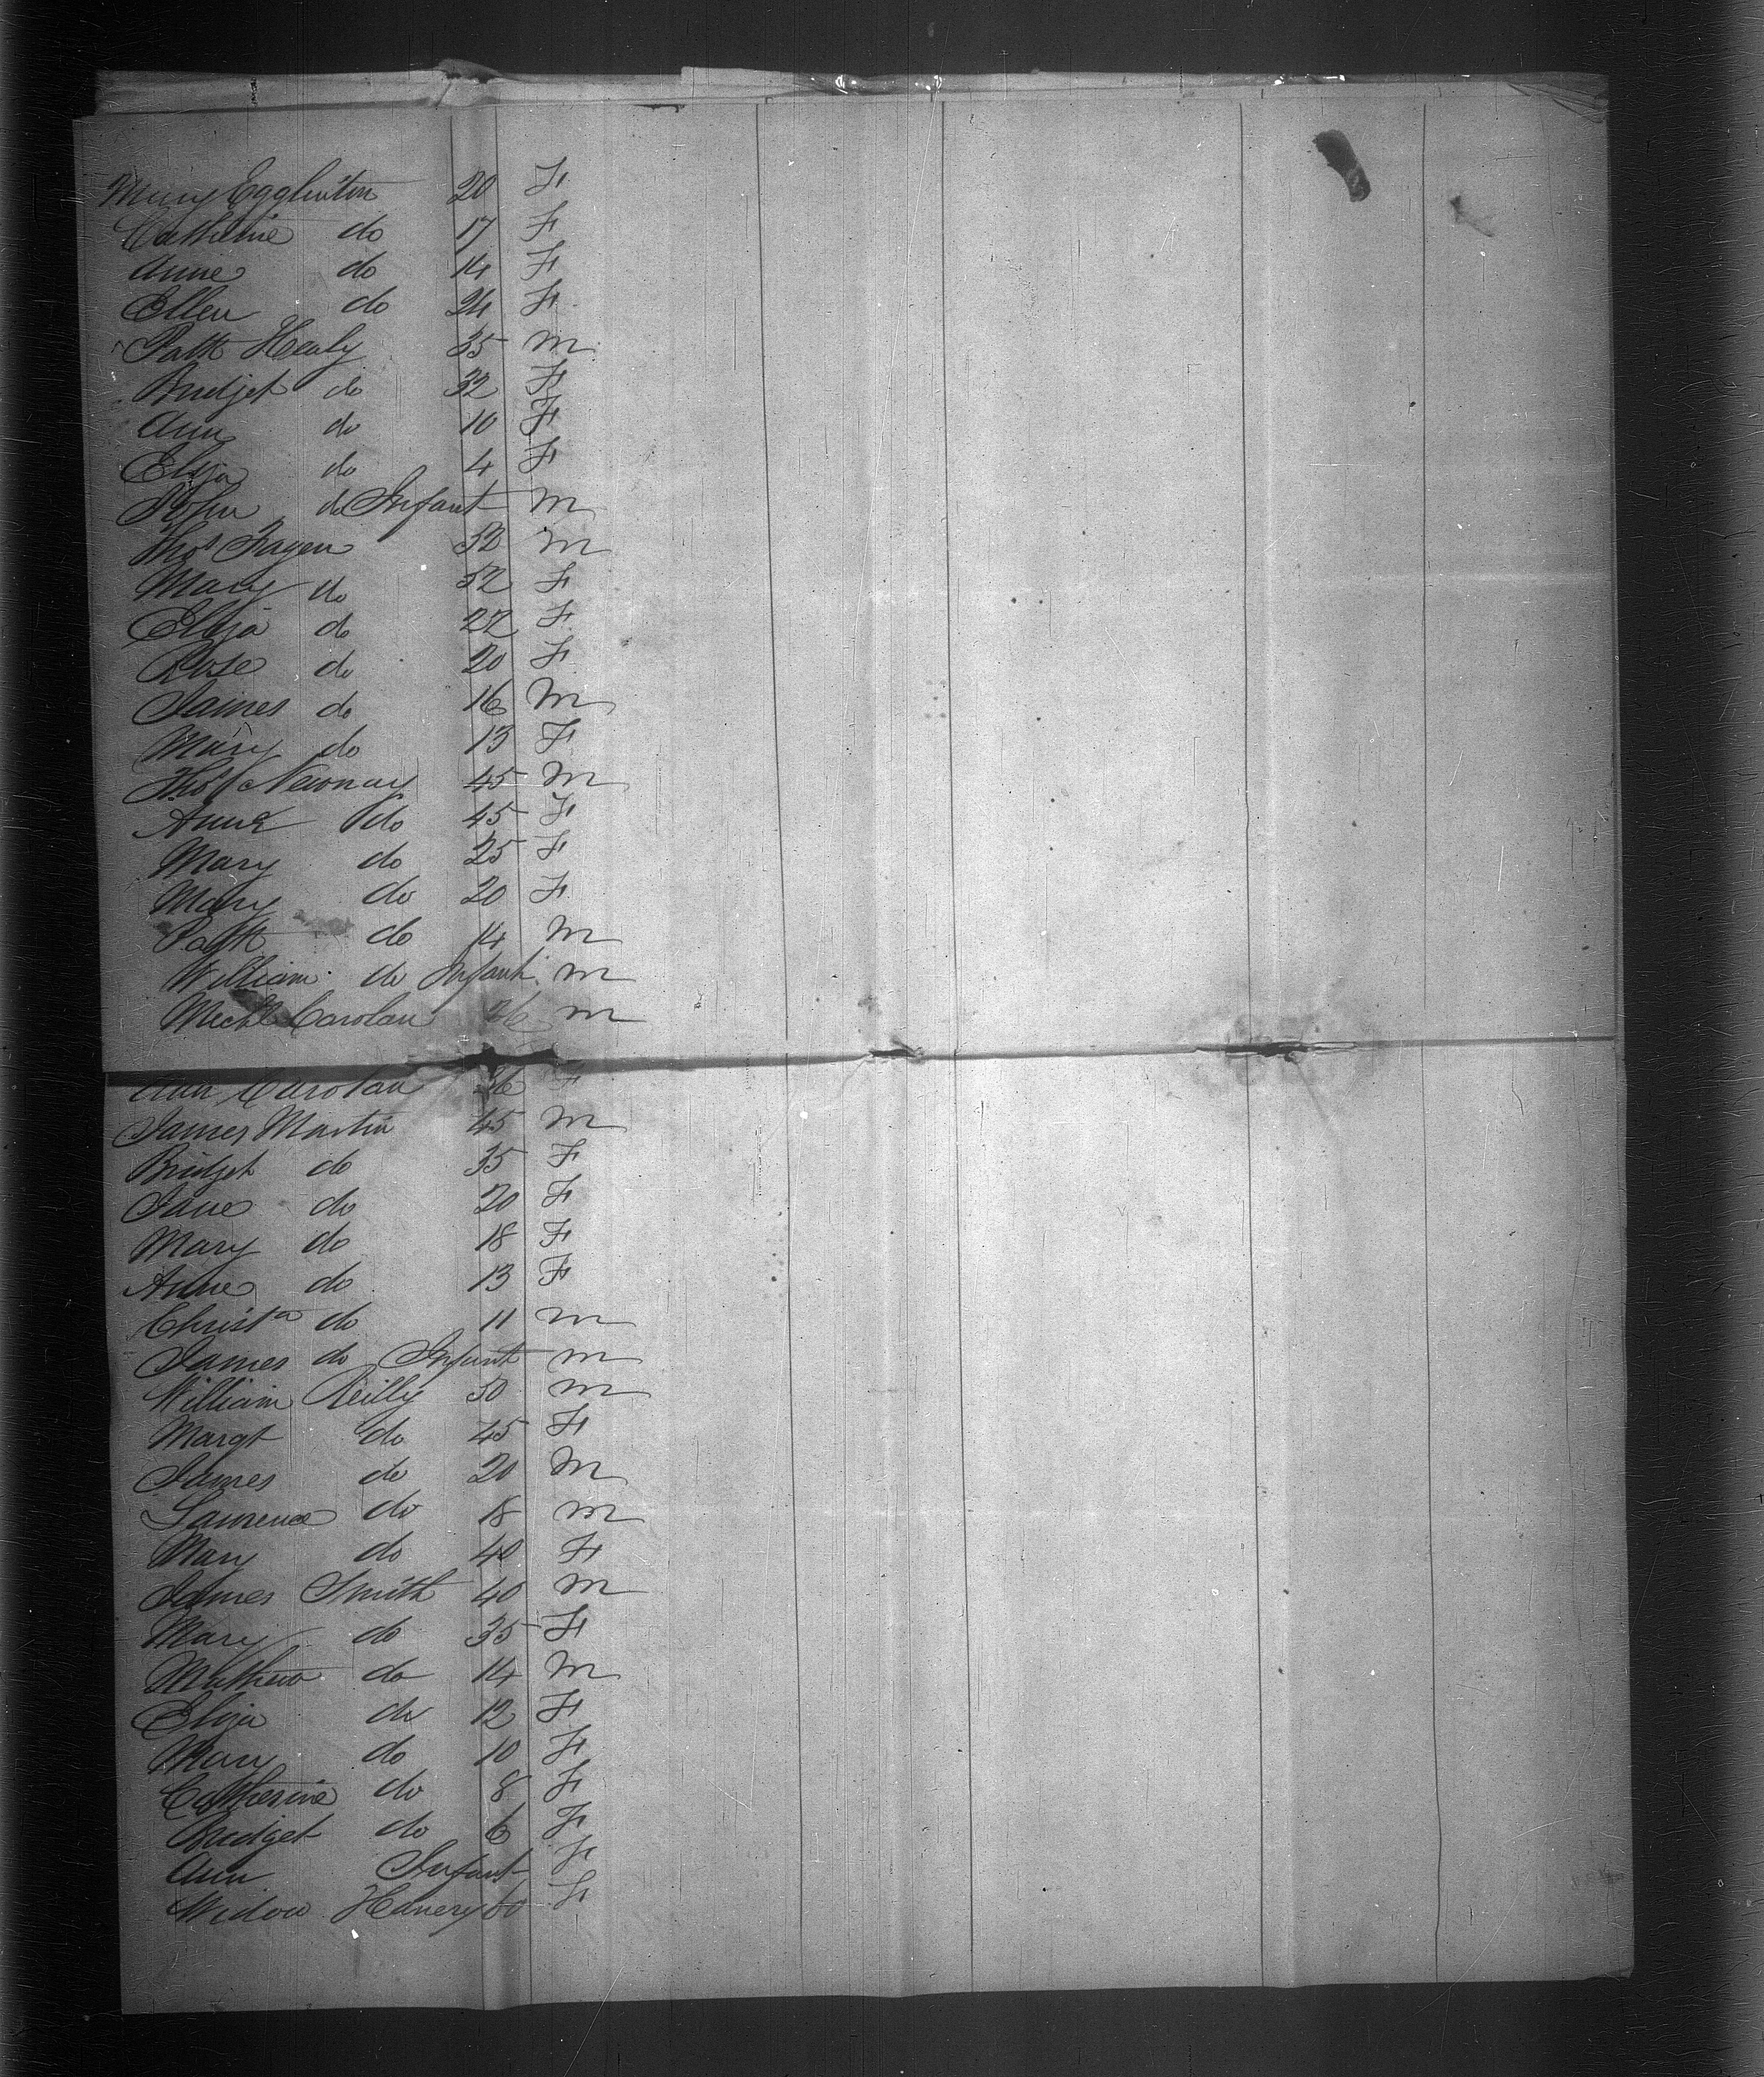 Mary Egglinton 20 F
Catherine do 17 F
Anne do 14 F
Ellen do 24 F
Patk Healy 35 m
Bridjet do 32 F
Ann do 10 F
Eliza do 4 F
John do Infant m
Thos Fagen 52 m
Mary do 52 F
Eliza do 22 F
Rose do 20 F
James do 16 m
Mary do 13 F
Thos 45 m
Anne do 45 F
Mary do 25 F
Mary do 20 F
Patk do 14 m
William do Infant m
Michl Carolan 26 m
Ann Carolan 26 F
James Martin 45 m
Bridjet do 35 F
Jane do 20 F
Mary do 18 F
Anne do 13 F
Christr do 11 m
James do Infant m
William Reilly 50 m
Margt do 45 F
James do 20 m
Laurence do 18 m
Mary do 40 F
James Smith 40 m
Mary do 35 F
Mathew do 14 m
Eliza do 12 F
Mary do 10 F
Catherine do 8 F
Bridget do 6 F
Ann Infant F
Widow Hanery 60 F